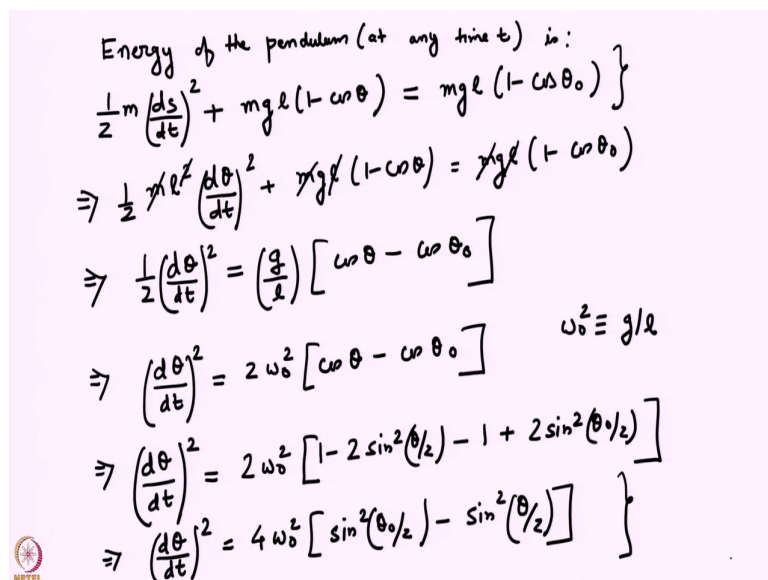 Energy of the pendulum (at any time t) is:
1/2 m (ds/dt)² + mgl(1-cosθ) = mgl(1-cosθ₀) }
⇒ 1/2 ml² (dθ/dt)² + mgl(1-cosθ) = mgl(1-cosθ₀)
⇒ 1/2 (dθ/dt)² = (g/l) [cosθ - cosθ₀]
⇒ (dθ/dt)² = 2ω₀² [cosθ - cosθ₀] ω₀² ≡ g/l
⇒ (dθ/dt)² = 2ω₀² [1-2sin²(θ/2) - 1 + 2sin²(θ₀/2)]
⇒ (dθ/dt)² = 4ω₀² [sin²(θ₀/2) - sin²(θ/2)] }
NPTEL